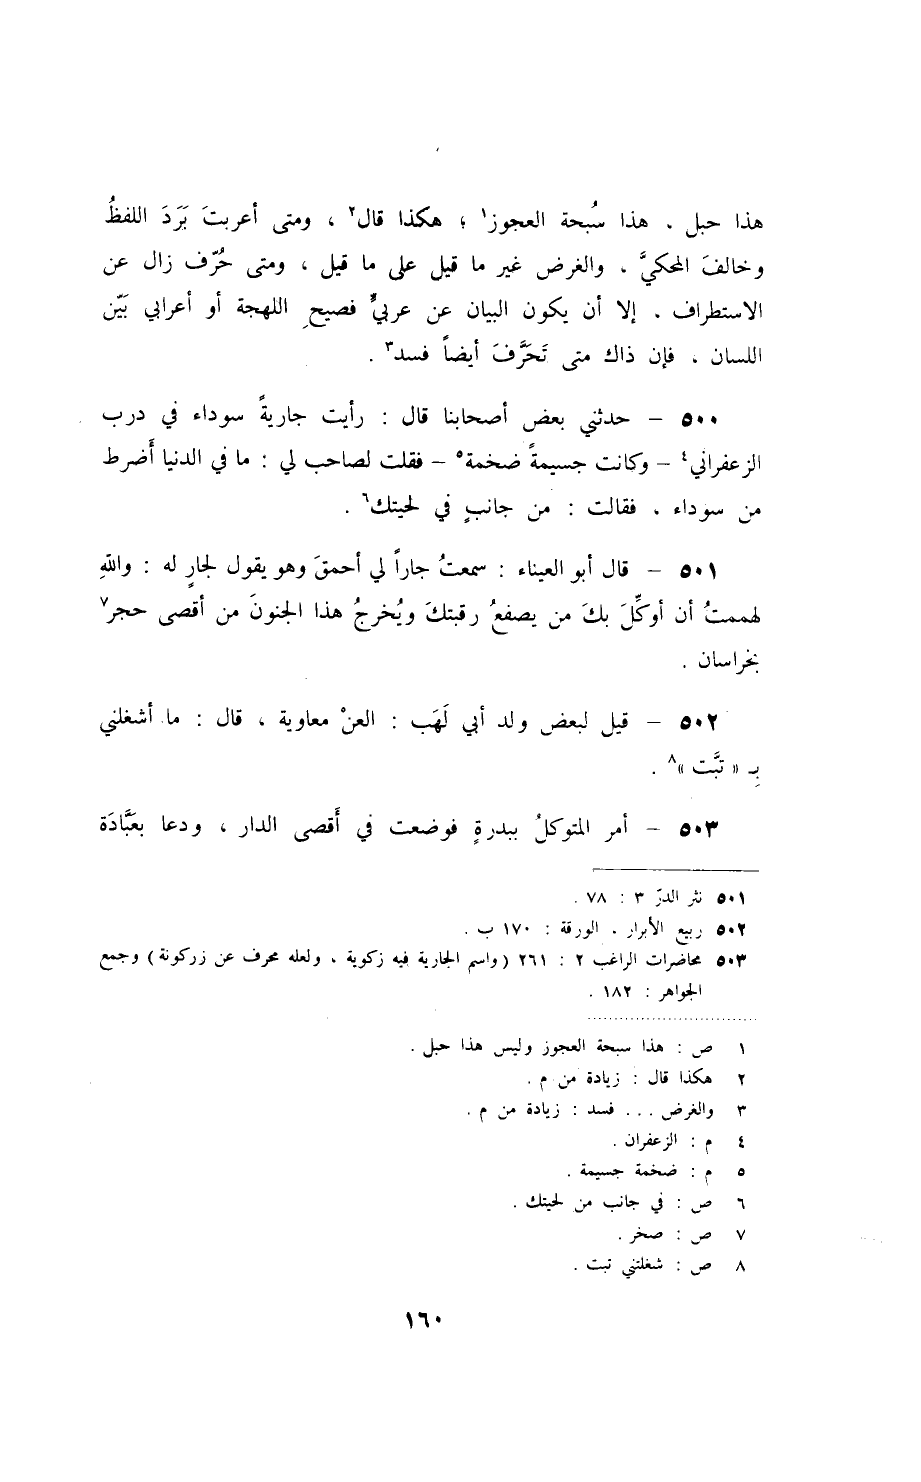 هذا حبل . هذا سُبحة العجوز١ ؛ هكذا قال٢ ، ومتى أعربتَ بَرَدَ اللفظُ
وخالفَ المحكيَّ . والغرض غير ما قيل على ما قيل ، ومتى حُرّف زال عن
الاستطراف . إلا أن يكون البيان عن عربيٍّ فصيحِ اللهجة أو أعرابي بَيّن
اللسان . فإن ذاك متى تَحَرَّفَ أيضاً فسد٣ .
٥٠٠ – حدثني بعض أصحابنا قال : رأيت جاريةً سوداء في درب
الزعفراني٤ – وكانت جسيمةً ضخمة٥ – فقلت لصاحب لي : ما في الدنيا أَضرط
من سوداء ، فقالت : من جانبٍ في لحيتك٦ .
٥٠١ – قال أبو العيناء : سمعتُ جاراً لي أحمقَ وهو يقول لجارٍ له : واللهِ
لهممتُ أن أوكِّلَ بكَ من يصفعُ رقبتكَ ويُخرجُ هذا الجنونَ من أقصى حجر٧
بخراسان .
٥٠٢ – قيل لبعض ولد أبي لَهَب : العنْ معاوية ، قال : ما أشغلني
بِـ « تبَّت »٨ .
٥٠٣ – أمر المتوكلُ ببدرةٍ فوضعت في أَقصى الدار ، ودعا بعَبَّادَة
٥٠١ نثر الدرّ ٣ : ٧٨ .
٥٠٢ ربيع الأبرار . الورقة : ١٧٠ ب .
٥٠٣ محاضرات الراغب ٢ : ٢٦١ (واسم الجارية فيه زكوية ، ولعله محرف عن زركونة) وجمع
الجواهر : ١٨٢ .
١ ص : هذا سبحة العجوز وليس هذا حبل .
٢ هكذا قال : زيادة من م .
٣ والغرض ... فسد : زيادة من م .
٤ م : الزعفران .
٥ م : ضخمة جسيمة .
٦ ص : في جانب من لحيتك .
٧ ص : صخر .
٨ ص : شغلتني تبت .
١٦٠